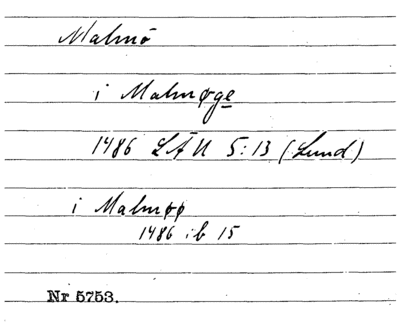 Malmö
i Malmøge
1486 LÄU 5:13 (Lund)
i Malmøø
1486 ib 15
Nr 5753.